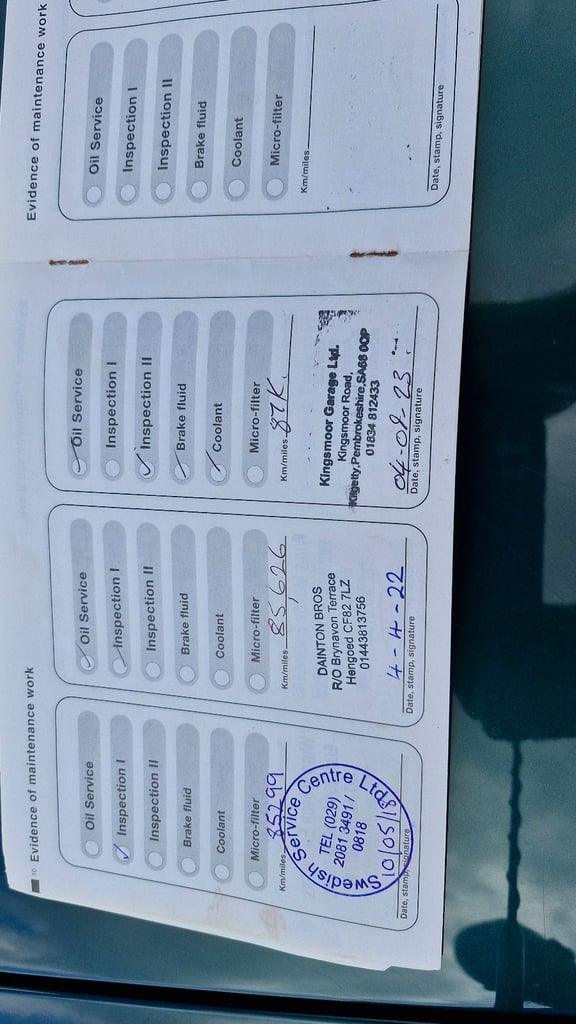 10 Evidence of maintenance work
Oil Service
Inspection I
Inspection II
Brake fluid
Coolant
Micro-filter
Km/miles 85299
Swedish Service Centre Ltd.
TEL (029)
2081 3491 /
0818
10/05/18
Date, stamp, signature
Oil Service
Inspection I
Inspection II
Brake fluid
Coolant
Micro-filter
Km/miles 85,626
DAINTON BROS
R/O Brynavon Terrace
Hengoed CF82 7LZ
01443813756
4-4-22
Date, stamp, signature
Oil Service
Inspection I
Inspection II
Brake fluid
Coolant
Micro-filter
Km/miles 87K.
Kingsmoor Garage Ltd.
Kingsmoor Road,
Kilgetty, Pembrokeshire, SA68 0QP
01834 812433
Date, stamp, signature
Evidence of maintenance work
Oil Service
Inspection I
Inspection II
Brake fluid
Coolant
Micro-filter
Km/miles
Date, stamp, signature